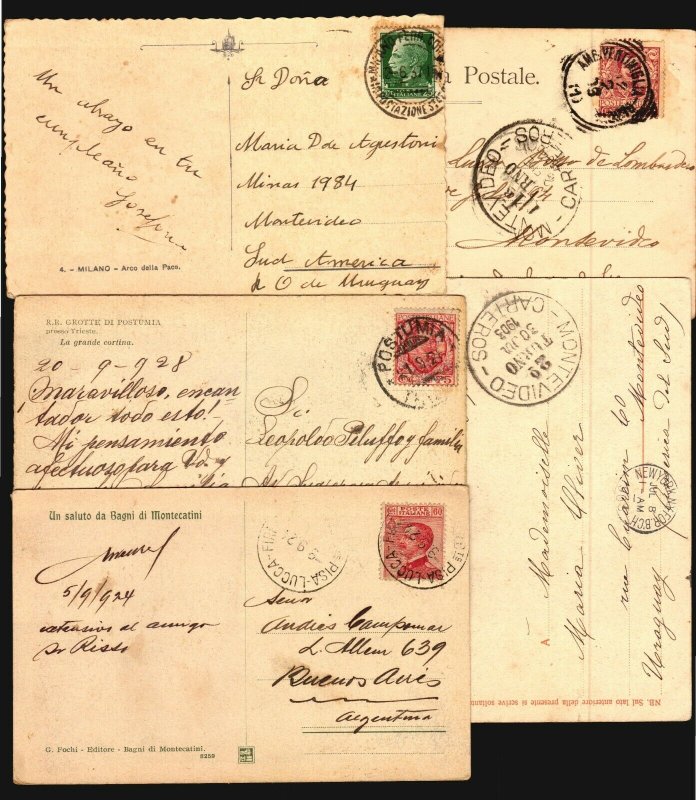 Un abrazo en tu
cumpleaño
Josefina
4. - MILANO - Arco della Pace.
Sr Doña
Maria D de Agustoni
Minas 1984
Montevideo
Sud America
R O de Uruguay
a Postale.
AMB. VENTIMIGLIA
MONTEVIDEO - CARTEROS
TURNO
de Lombardero
Montevideo
R.R. GROTTE DI POSTUMIA
presso Trieste.
La grande cortina.
20-9-928
¡Maravilloso, encan-
tador todo esto!
Mi pensamiento
afectuoso para Vd. y
POSTUMIA
Sr
Leopoldo Peluffo y familia
MONTEVIDEO - CARTEROS -
30 JUL
1903
TURNO
2o
NEW YORK
JUL 8
AM
A
Mademoiselle
Maria Oliver
rue Cuareim 60
Montevideo
Uruguay America del Sud
NB. Sul lato anteriore della presente si scrive soltanto
Un saluto da Bagni di Montecatini
5/9/924
extensivo al amigo
Dr Risso
PISA-LUCCA-FIR
POSTE ITALIANE
60
PISA-LUCCA-FIR
Señor
Andrés Campomar
Buenos Aires
Argentina
G. Fochi - Editore - Bagni di Montecatini.
8259